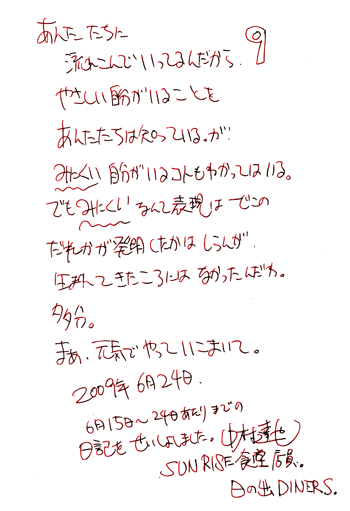 9
あんたたちに
流れこんでいってるんだから、
やさしい自分がいることを
あんたたちは知っている。が!
みにくい自分がいるコトもわかってはいる。
でもみにくいなんて表現はどこの
だれかが発明したかはしらんが、
生まれてきたころにはなかったんだわ。
多分。
まあ、元気でやっていこまいて。
2009年6月24日.
6月15日〜24日あたりまでの
日記をせいしょしました。(中村達也)
SUNRISE食堂店員。
日の出DINERS.